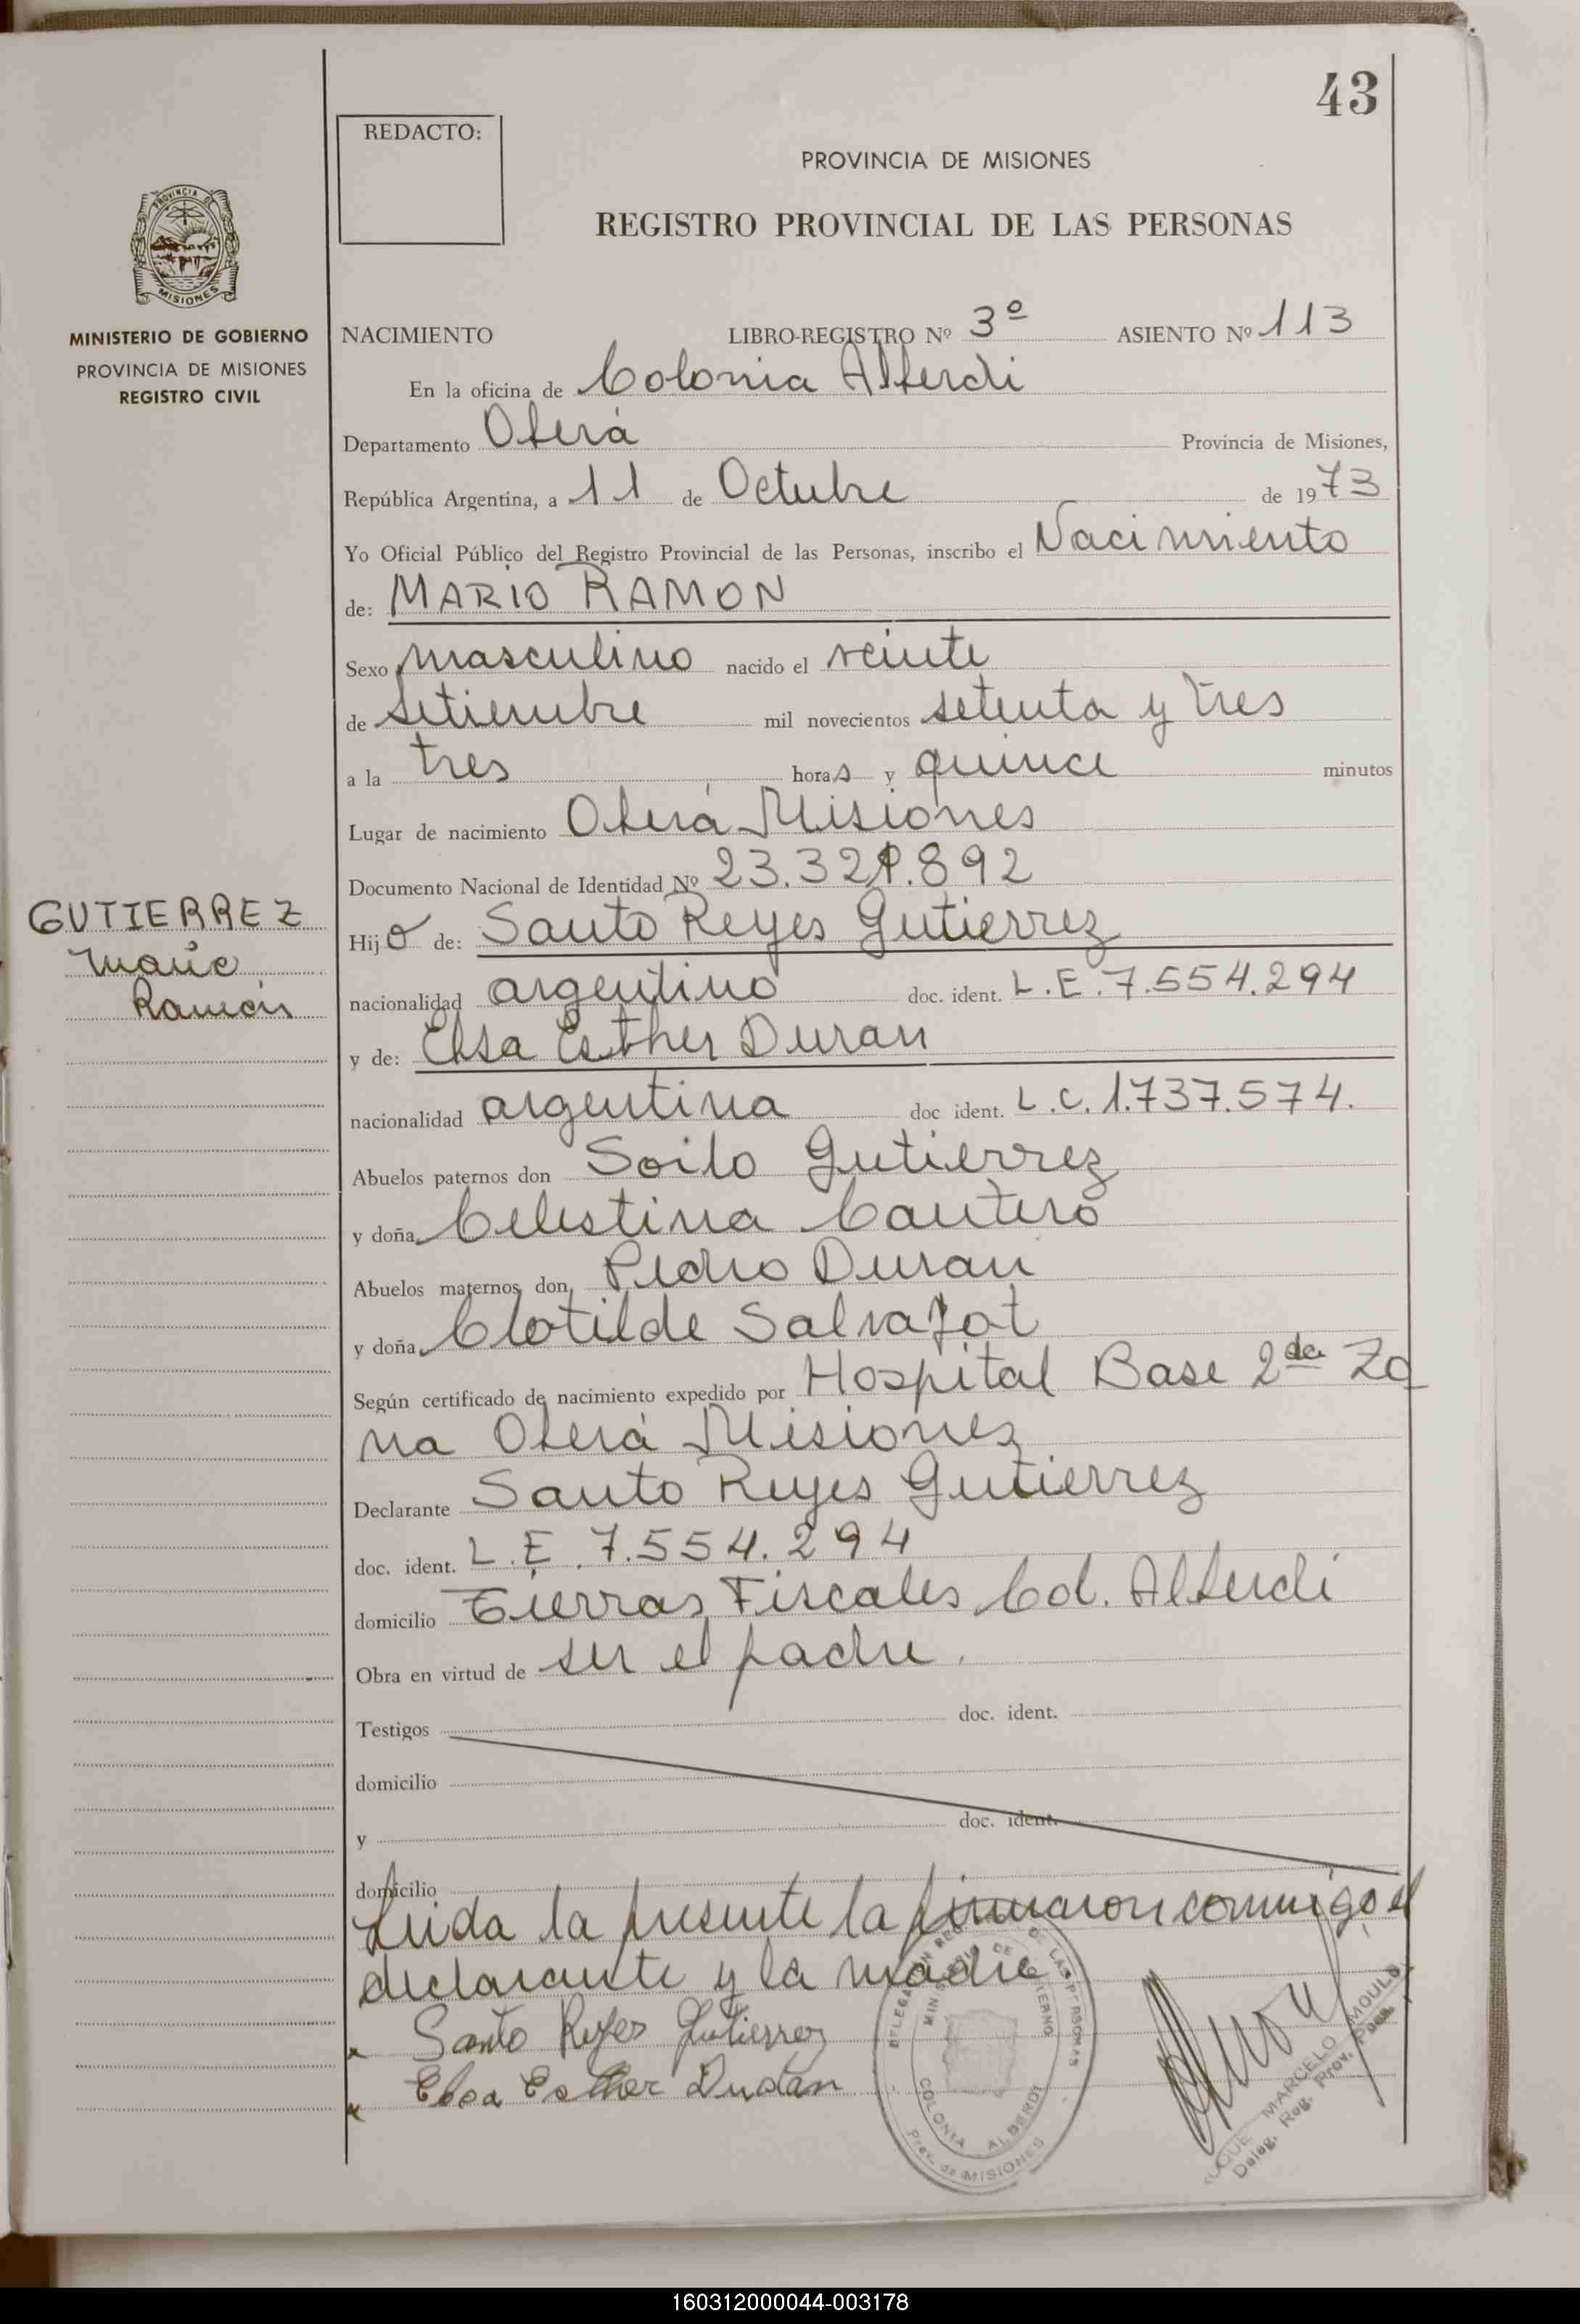 43
REDACTO:
PROVINCIA DE MISIONES
REGISTRO PROVINCIAL DE LAS PERSONAS
PROVINCIA DE
MISIONES
MINISTERIO DE GOBIERNO
PROVINCIA DE MISIONES
REGISTRO CIVIL
NACIMIENTO LIBRO-REGISTRO Nº 3º ASIENTO Nº 113
En la oficina de Colonia Alberdi
Departamento Oberá Provincia de Misiones,
República Argentina, a 11 de Octubre de 1973
Yo Oficial Público del Registro Provincial de las Personas, inscribo el Nacimiento
de: MARIO RAMON
Sexo masculino nacido el veinte
de setiembre mil novecientos setenta y tres
a la tres horas y quince minutos
Lugar de nacimiento Oberá Misiones
Documento Nacional de Identidad Nº
GUTIERREZ
Mario
Ramón
Hijo de: Santo Reyes Gutierrez
nacionalidad argentino doc. ident. L.E. 7.554.294
y de: Elsa Esther Duran
nacionalidad argentina doc ident. L.C. 1.737.574.
Abuelos paternos don Soilo Gutierrez
y doña Celestina Cantero
Abuelos maternos don Pedro Duran
y doña Clotilde
Según certificado de nacimiento expedido por Hospital Base 2da Zo
na Oberá Misiones
Declarante Santo Reyes Gutierrez
doc. ident. L.E. 7.554.294
domicilio Tierras Fiscales Col. Alberdi
Obra en virtud de ser el padre.
Testigos doc. ident.
domicilio
y doc. ident.
domicilio
Leida la presente la firmaron conmigo el
declarante y la madre
x Santo Reyes Gutierrez
x Elsa Esther Durán
DE LAS PERSONAS
MINISTERIO DE GOBIERNO
COLONIA ALBERDI
Prov. de MISIONES
MARCELO MOULO
Deleg. Reg. Prov. Pers.
160312000044-003178